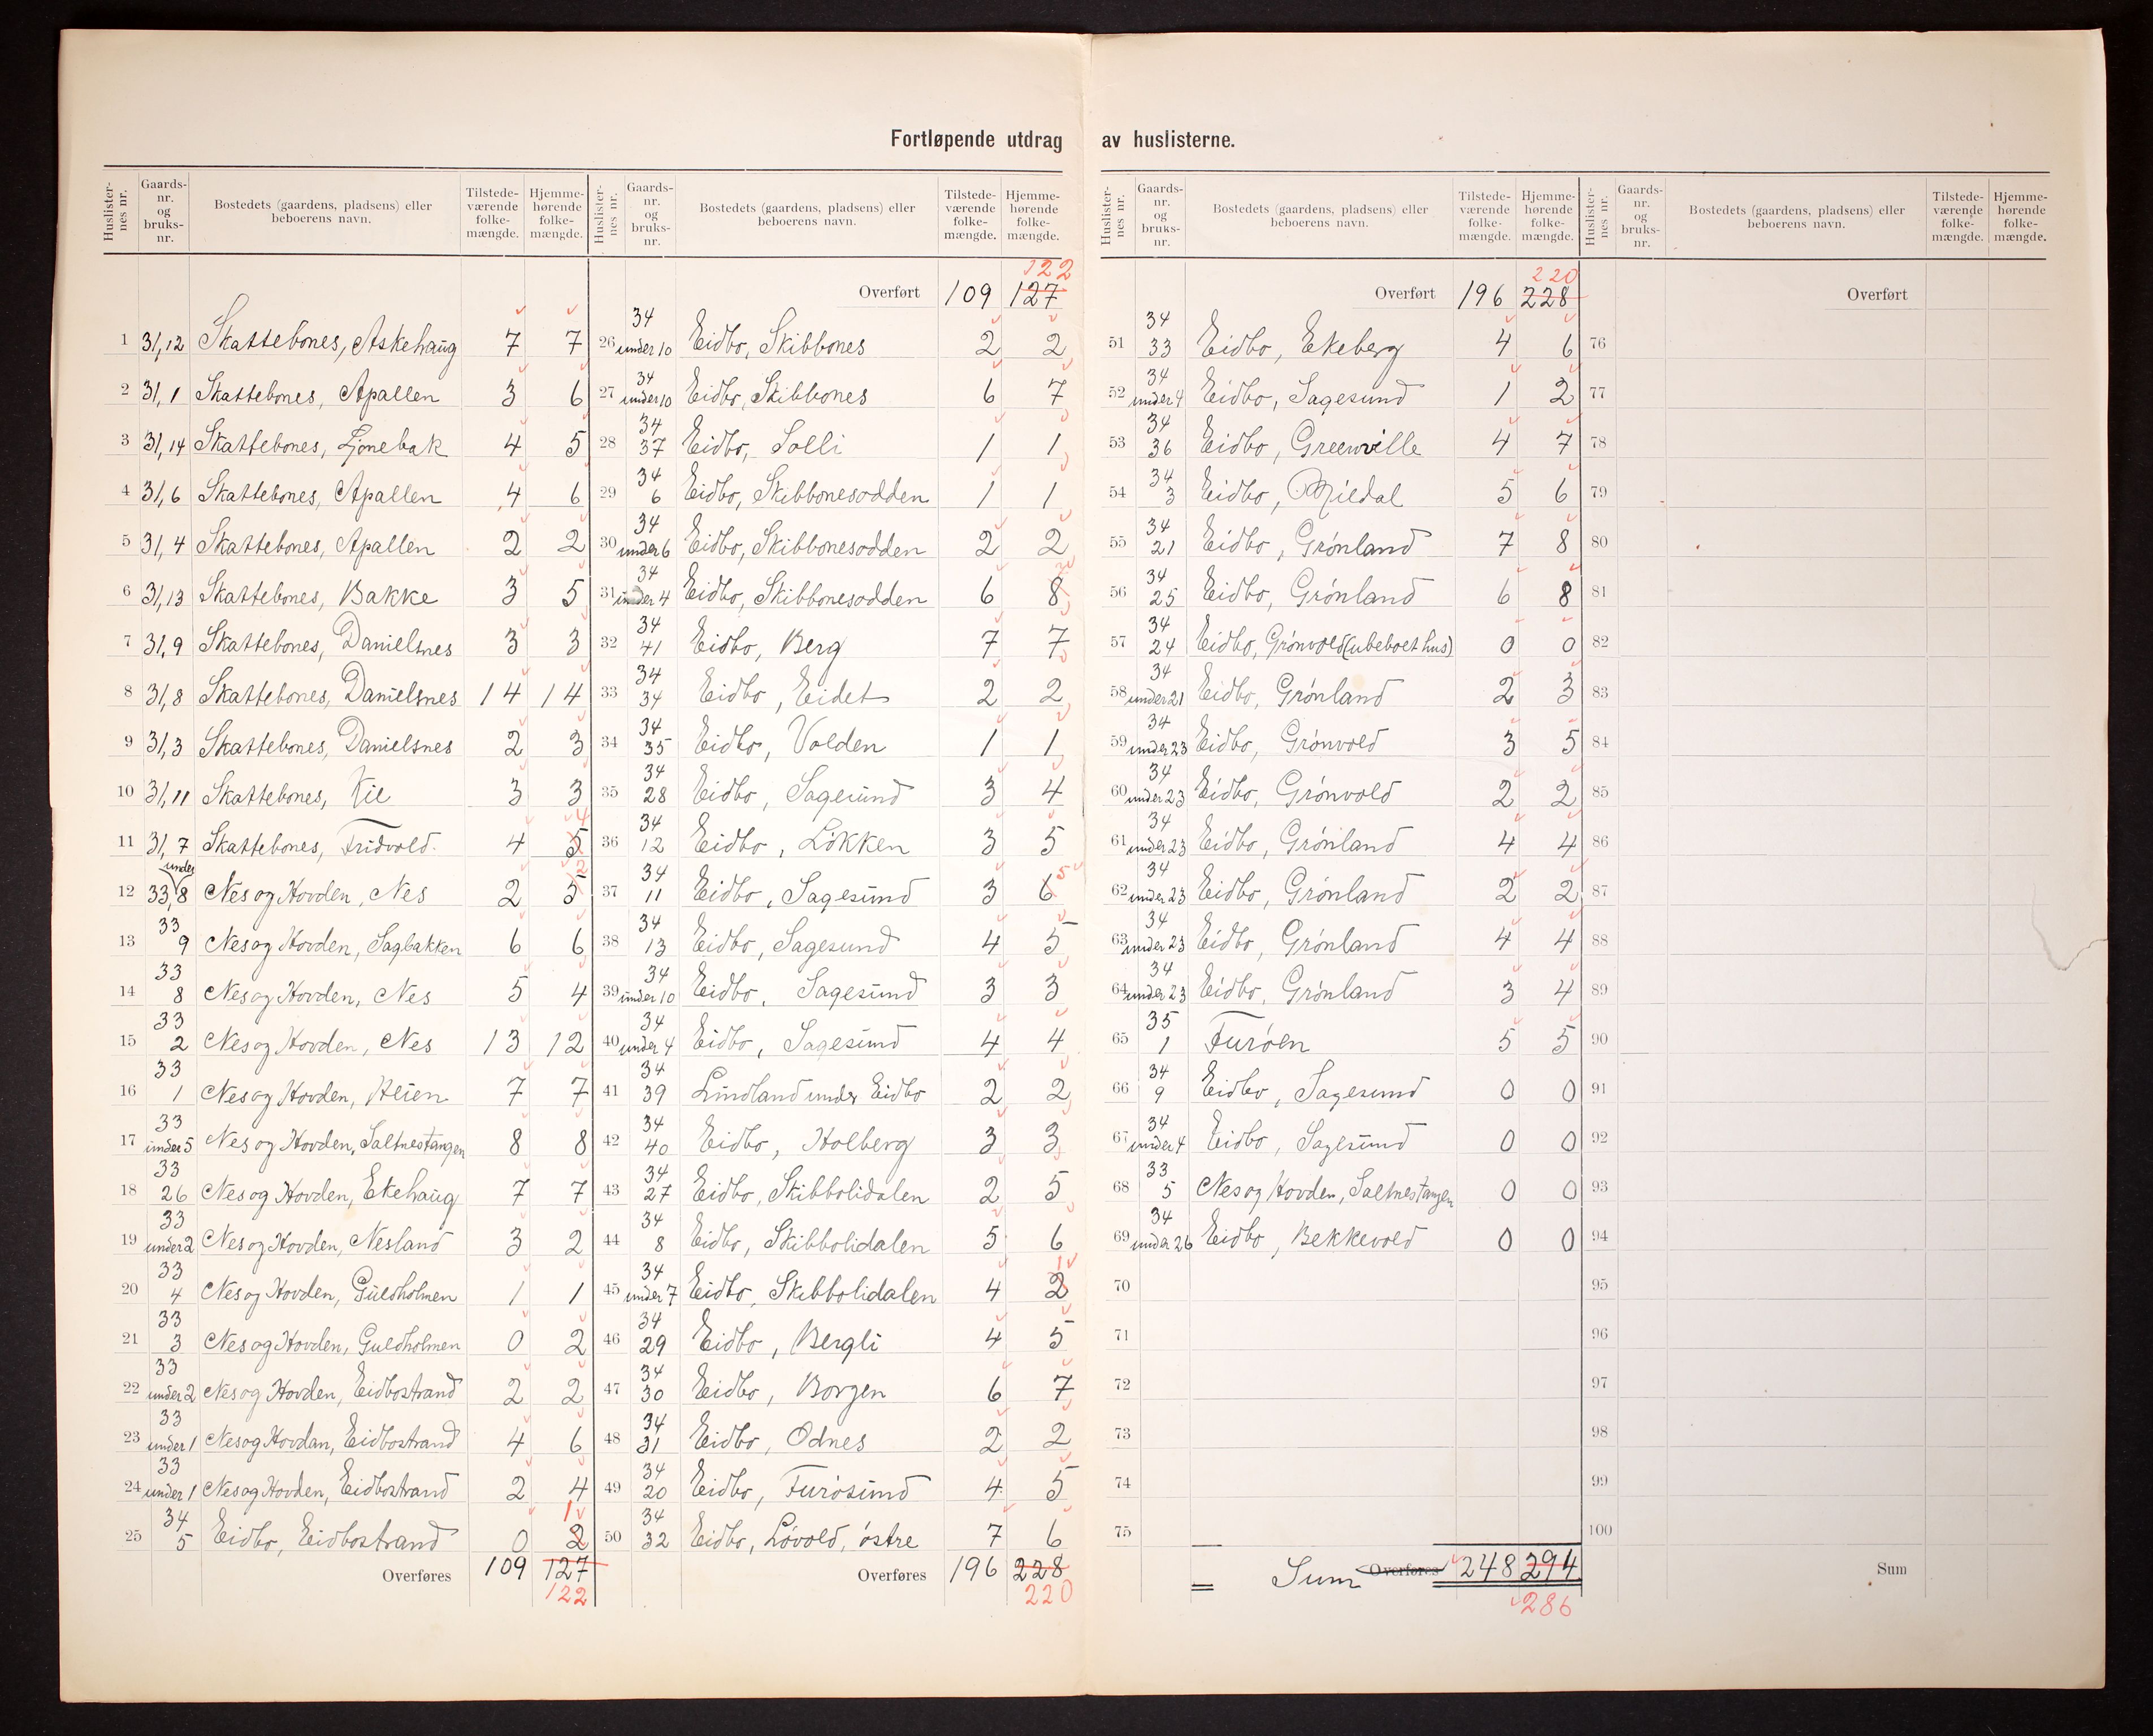 Fortløpende utdrag av huslisterne.
Huslister-nes nr. Gaards-nr. og bruks-nr. Bostedets (gaardens, pladsens) eller beboerens navn. Tilstede-værende folke-mængde. Hjemme-hørende folke-mængde.
1 31,12 Skattebones, Askehaug 7 7
2 31,1 Skattebones, Apallen 3 6
3 31,14 Skattebones, Lønebak 4 5
4 31,6 Skattebones, Apallen 4 6
5 31,4 Skattebones, Apallen 2 2
6 31,13 Skattebones, Bakke 3 5
7 31,9 Skattebones, Danielsnes 3 3
8 31,8 Skattebones, Danielsnes 14 14
9 31,3 Skattebones, Danielsnes 2 3
10 31,11 Skattebones, Kil 3 3
11 31,7 Skattebones, Fridvold 4 5 4
12 33 under 8 Nes og Hovden, Nes 2 5 2
13 33 9 Nes og Hovden, Sagbakken 6 6
14 33 8 Nes og Hovden, Nes 5 4
15 33 2 Nes og Hovden, Nes 13 12
16 33 1 Nes og Hovden, Heien 7 7
17 33 under 5 Nes og Hovden, Saltnestangen 8 8
18 33 26 Nes og Hovden, Ekehaug 7 7
19 33 under 2 Nes og Hovden, Nesland 3 2
20 33 4 Nes og Hovden, Guldholmen 1 1
21 33 3 Nes og Hovden, Guldholmen 0 2
22 33 under 2 Nes og Hovden, Eidbostrand 2 2
23 33 under 1 Nes og Hovdan, Eidbostrand 4 6
24 33 under 1 Nes og Hovden, Eidbostrand 2 4
25 34 5 Eidbo, Eidbostrand 0 2 1
Overføres 109 127 122
Huslister-nes nr. Gaards-nr. og bruks-nr. Bostedets (gaardens, pladsens) eller beboerens navn. Tilstede-værende folke-mængde. Hjemme-hørende folke-mængde.
122
Overført 109 127
26 34 under 10 Eidbo, Skibbones 2 2
27 34 under 10 Eidbo, Skibbones 6 7
28 34 37 Eidbo, Solli 1 1
29 34 6 Eidbo, Skibbonesodden 1 1
30 34 under 6 Eidbo, Skibbonesodden 2 2
31 34 under 4 Eidbo, Skibbonesodden 6 8
32 34 41 Eidbo, Berg 7 7
33 34 34 Eidbo, Eidet 2 2
34 34 35 Eidbo, Volden 1 1
35 34 28 Eidbo, Sagesund 3 4
36 34 12 Eidbo, Løkken 3 5
37 34 11 Eidbo, Sagesund 3 6 5
38 34 13 Eidbo, Sagesund 4 5
39 34 under 10 Eidbo, Sagesund 3 3
40 34 under 4 Eidbo, Sagesund 4 4
41 34 39 Lindland under Eidbo 2 2
42 34 40 Eidbo, Holberg 3 3
43 34 27 Eidbo, Skibbolidalen 2 5
44 34 8 Eidbo, Skibbolidalen 5 6
45 34 under 7 Eidbo, Skibbolidalen 4 2 1
46 34 29 Eidbo, Bergli 4 5
47 34 30 Eidbo, Borgen 6 7
48 34 31 Eidbo, Odnes 2 2
49 34 20 Eidbo, Furøsund 4 5
50 34 32 Eidbo, Løvold, østre 7 6
Overføres 196 228 220
Huslister-nes nr. Gaards-nr. og bruks-nr. Bostedets (gaardens, pladsens) eller beboerens navn. Tilstede-værende folke-mængde. Hjemme-hørende folke-mængde.
220
Overført 196 228
51 34 33 Eidbo, Ekeberg 4 6
52 34 under 4 Eidbo, Sagesund 1 2
53 34 36 Eidbo, Greenville 4 7
54 34 3 Eidbo, Mildal 5 6
55 34 21 Eidbo, Grönland 7 8
56 34 25 Eidbo, Grönland 6 8
57 34 24 Eidbo, Grönvold (ubeboet hus) 0 0
58 34 under 21 Eidbo, Grönland 2 3
59 34 under 23 Eidbo, Grönvold 3 5
60 34 under 23 Eidbo, Grönvold 2 2
61 34 under 23 Eidbo, Grönland 4 4
62 34 under 23 Eidbo, Grönland 2 2
63 34 under 23 Eidbo, Grönland 4 4
64 34 under 23 Eidbo, Grönland 3 4
65 35 1 Furöen 5 5
66 34 9 Eidbo, Sagesund 0 0
67 34 under 4 Eidbo, Sagesund 0 0
68 33 5 Nes og Hovden, Saltnestangen 0 0
69 34 under 26 Eidbo, Bekkevold 0 0
70
71
72
73
74
75
= Sum Overføres 248 294
286
Huslister-nes nr. Gaards-nr. og bruks-nr. Bostedets (gaardens, pladsens) eller beboerens navn. Tilstede-værende folke-mængde. Hjemme-hørende folke-mængde.
Overført
76
77
78
79
80
81
82
83
84
85
86
87
88
89
90
91
92
93
94
95
96
97
98
99
100
Sum